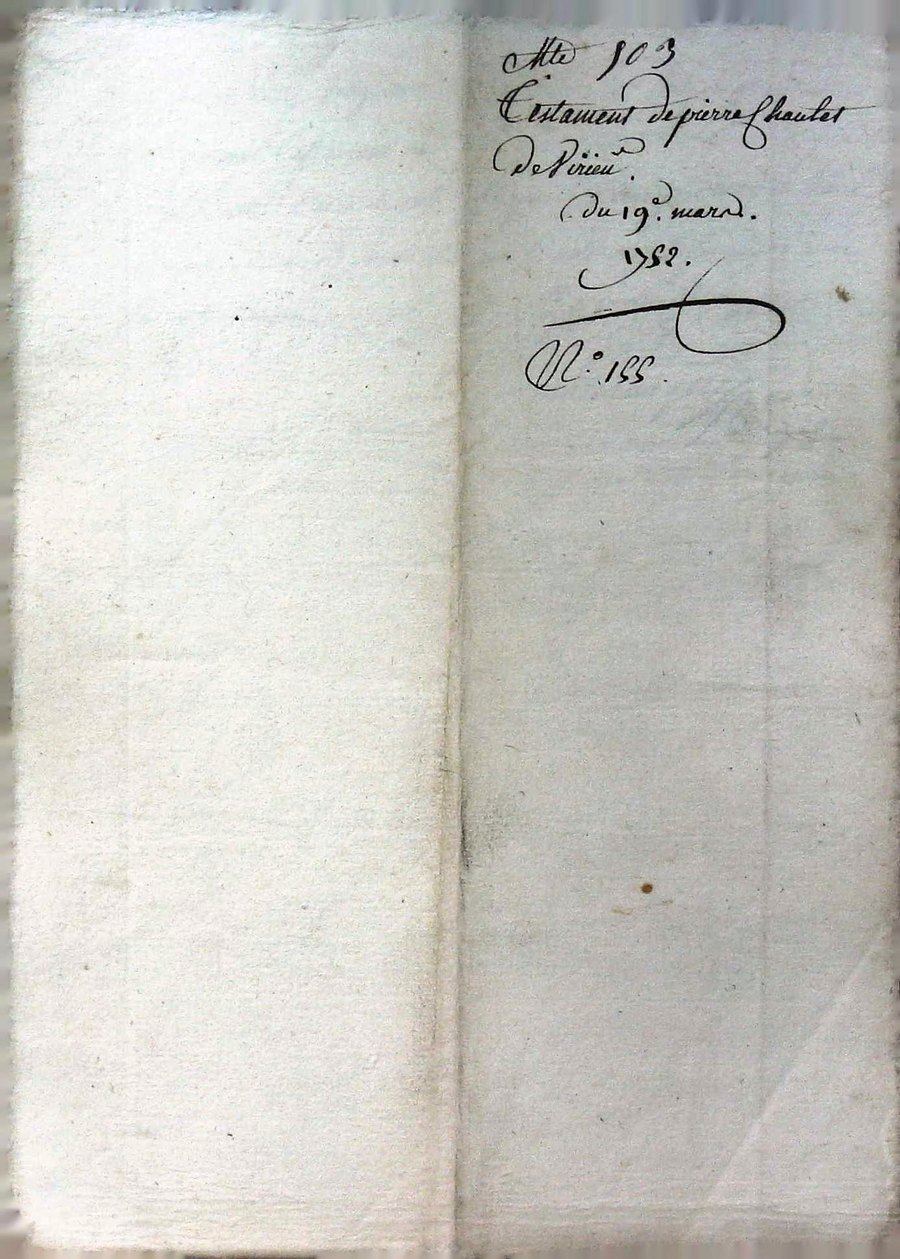 Mte 103
Testament de pierre Chaulet
de Virieu.
du 19e. mars.
1752.
N.° 155.